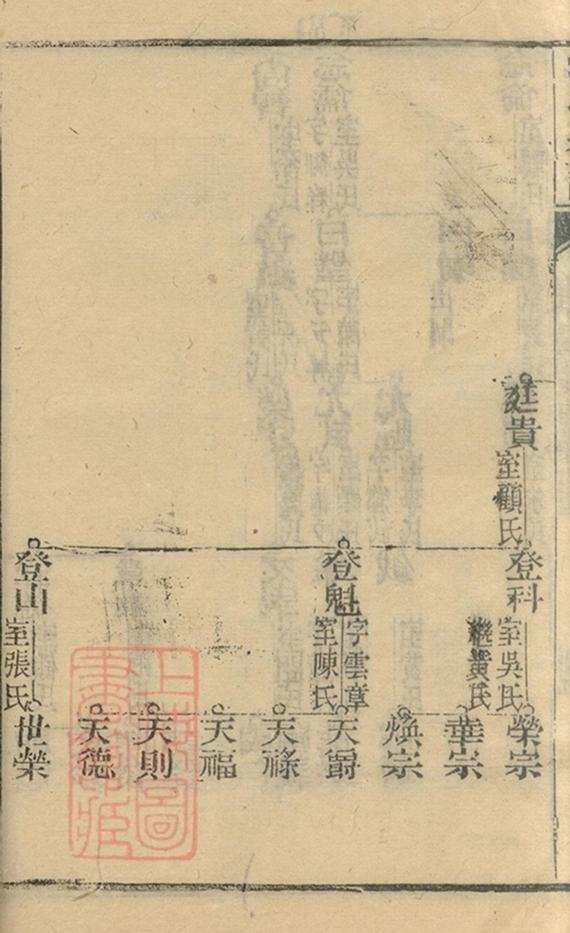 廷貴
室顧氏
登科
室吳氏
繼黃氏
榮宗
華宗
煥宗
登魁
字雲章
室陳氏
天爵
天祿
天福
天則
天德
登山
室張氏
世榮